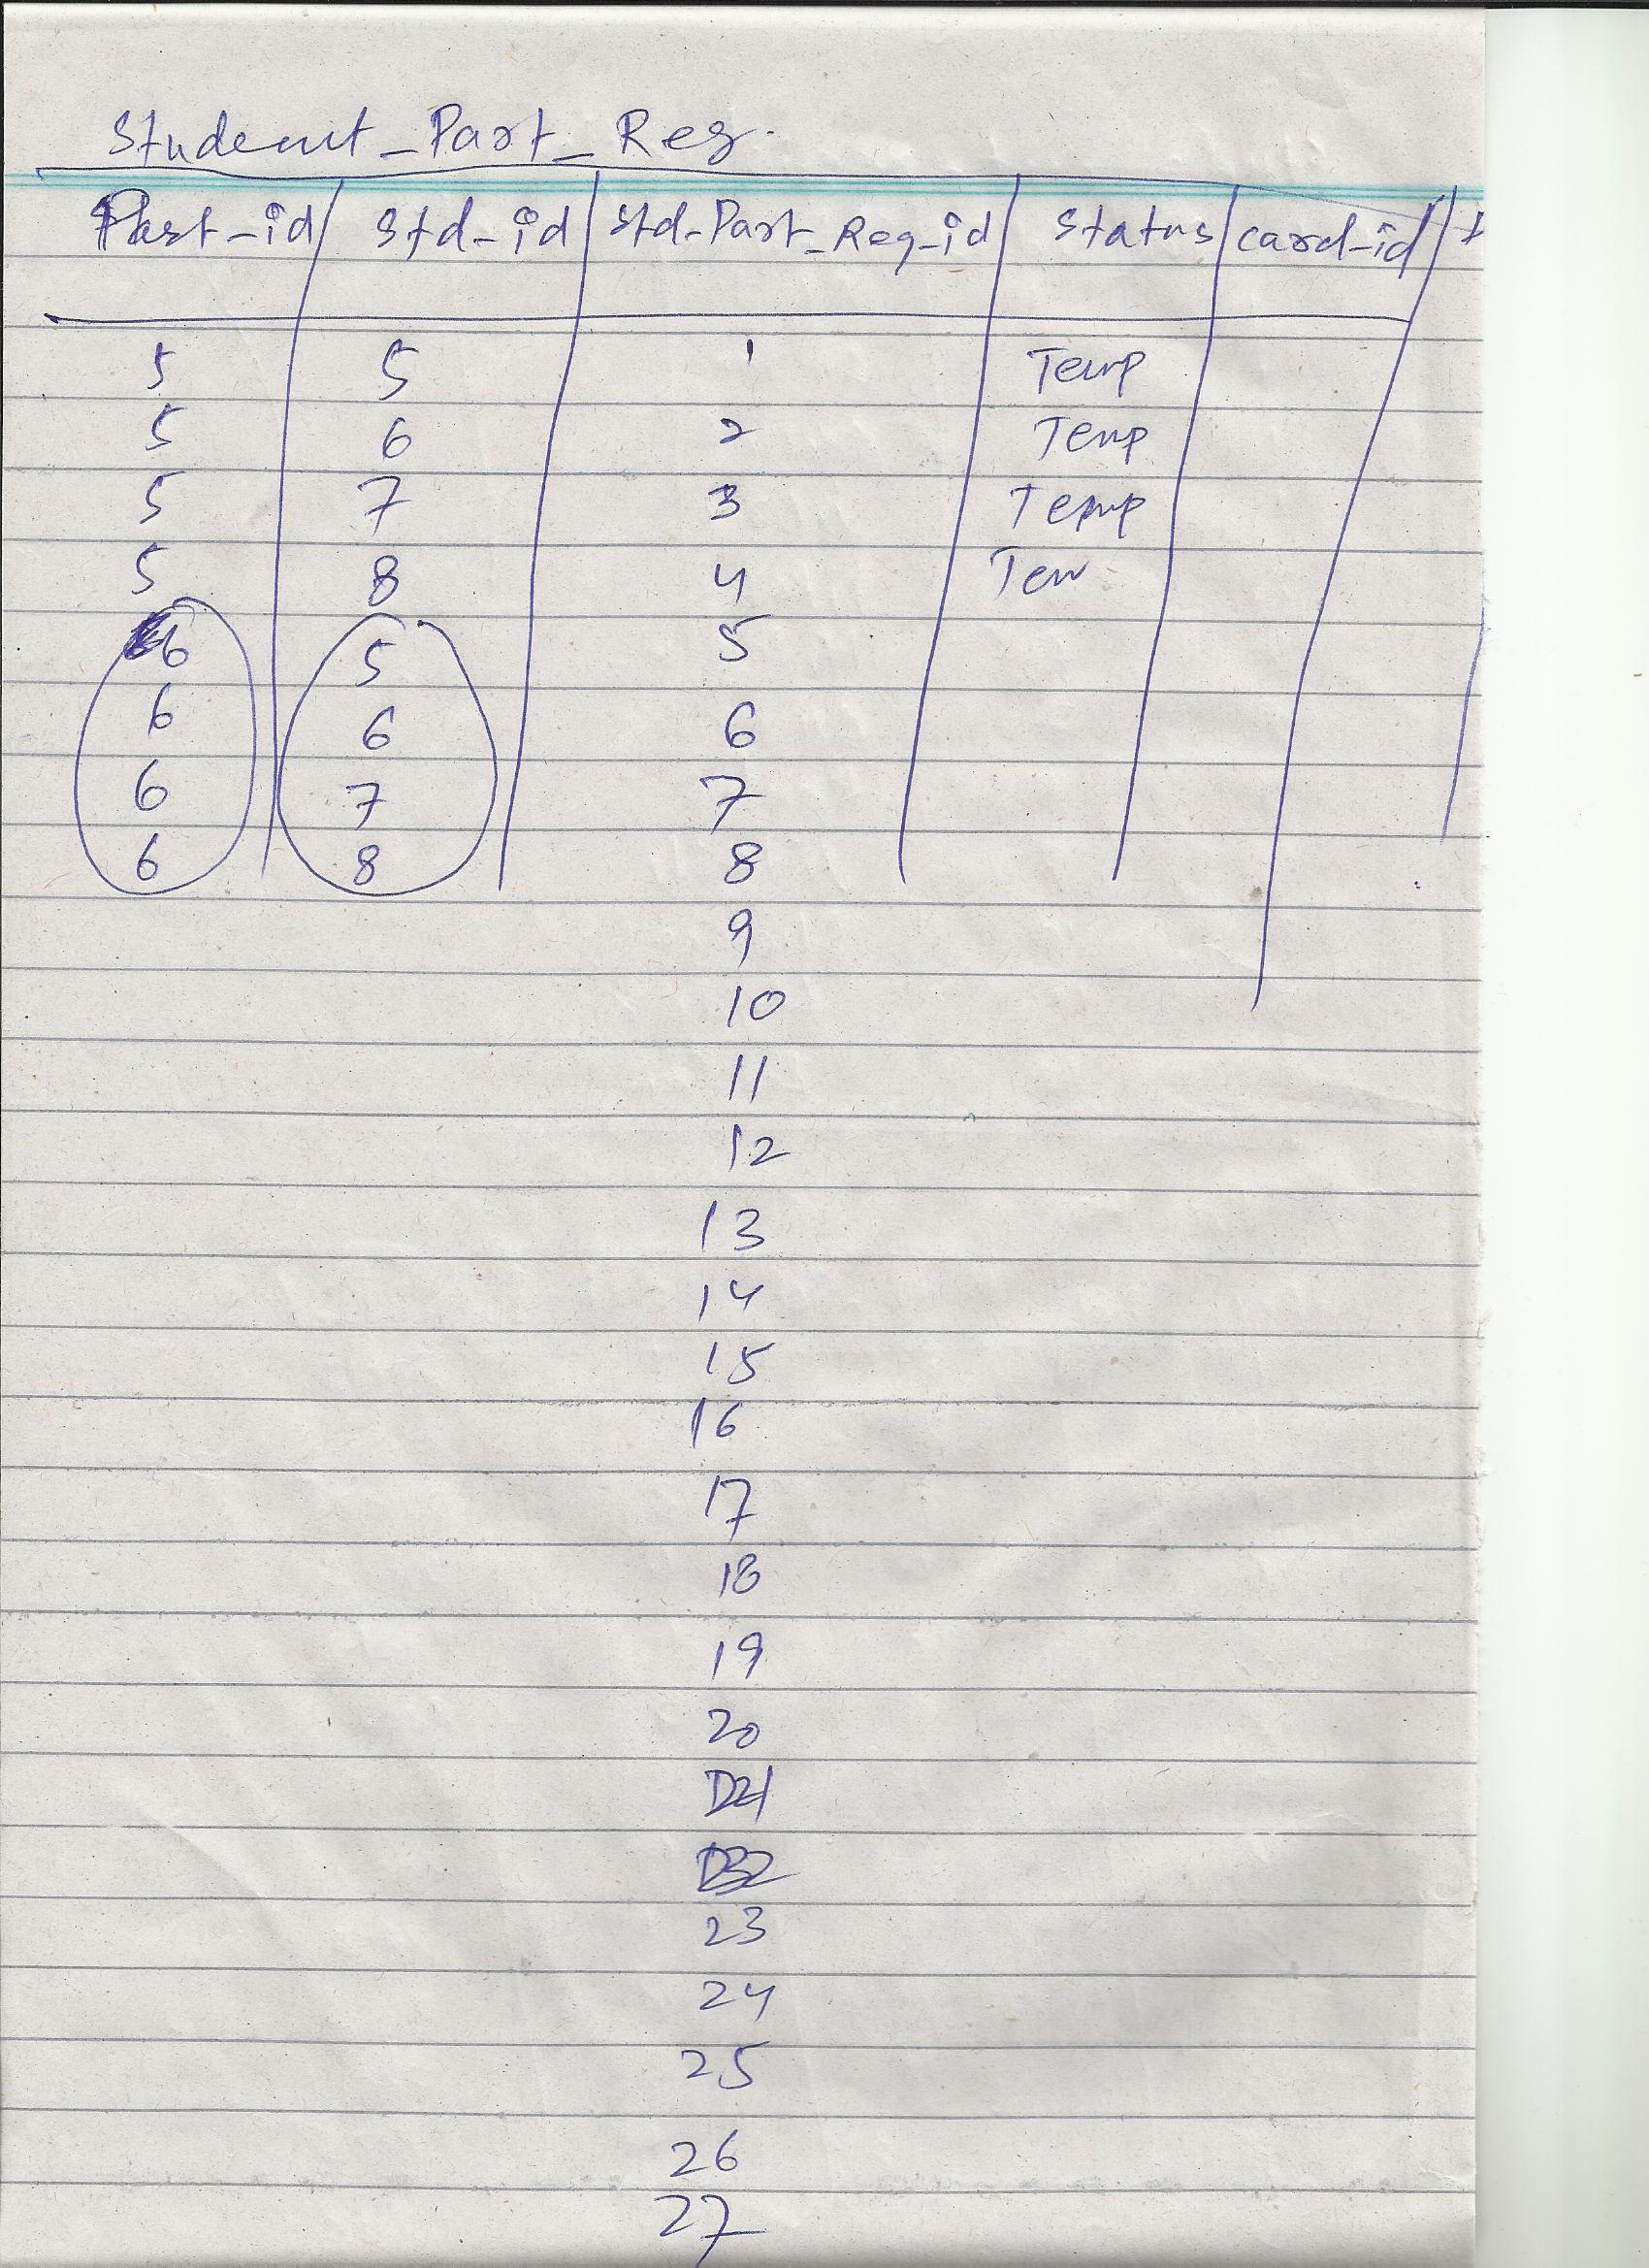 Student_Part_Reg.
Part_id std_id std_Part_Reg_id Status card_id
5 5 1 Temp
5 6 2 Temp
5 7 3 Temp
5 8 4 Tem
6 5 5
6 6 6
6 7 7
6 8 8
9
10
11
12
13
14
15
16
17
18
19
20
21
23
24
25
26
27